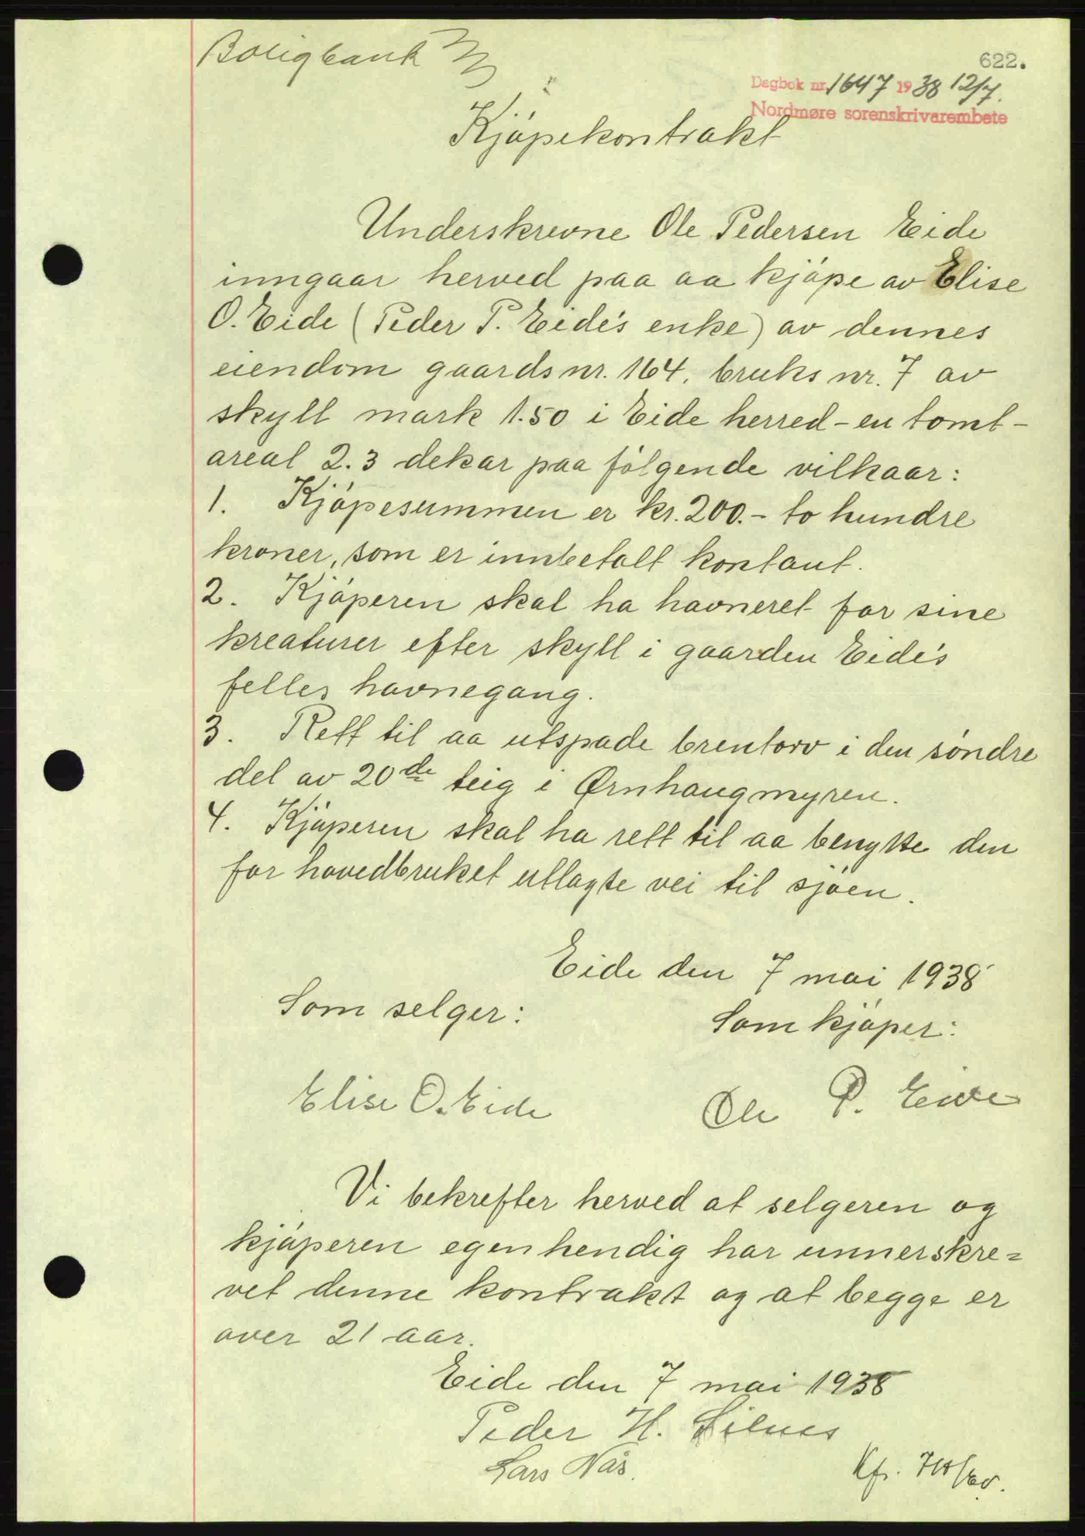 Boligbank
622.
Dagbok nr. 1647 1938 12/7.
Nordmøre sorenskrivarembete
Kjøpekontrakt
Underskrevne Ole Pedersen Eide
inngaar herved paa aa kjøpe av Elise
O. Eide (Peder P. Eide's enke) av dennes
eiendom gaards nr. 164. bruks nr. 7 av
skyll mark 1.50 i Eide herred - en tomt -
areal 2.3 dekar paa følgende vilkaar:
1. Kjøpesummen er kr. 200.- to hundre
kroner, som er innbetalt kontant.
2. Kjøperen skal ha havneret for sine
kreaturer efter skyll i gaarden Eide's
felles havnegang.
3. Rett til aa utspade brentorv i den søndre
del av 20de teig i Ørnhaugmyren.
4. Kjøperen skal ha rett til aa benytte den
for hovedbruket utlagte vei til sjøen.
Eide den 7 mai 1938
Som selger:
Som kjøper:
Elise O. Eide
Ole P. Eide
Vi bekrefter herved at selgeren og
kjøperen egenhendig har unnerskre=
vet denne kontrakt og at begge er
over 21 aar.
Eide den 7 mai 1938
Peder H. Silnes
Lars Nås.
Kfr.